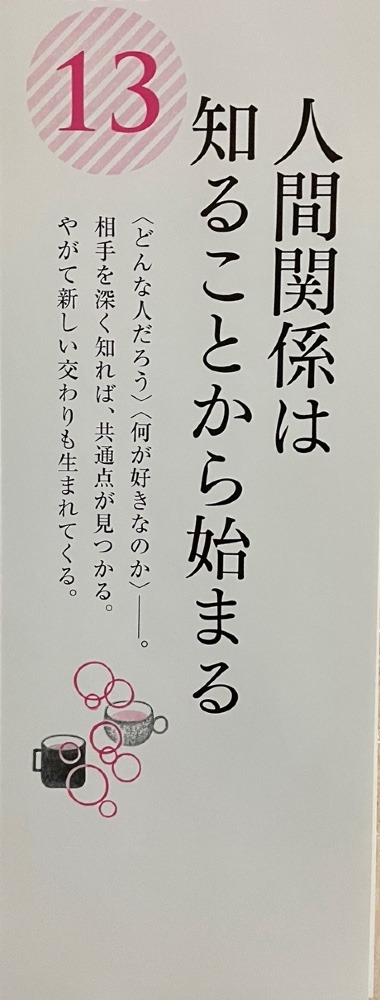 13
人間関係は
知ることから始まる
〈どんな人だろう〉〈何が好きなのか〉――。
相手を深く知れば、共通点が見つかる。
やがて新しい交わりも生まれてくる。